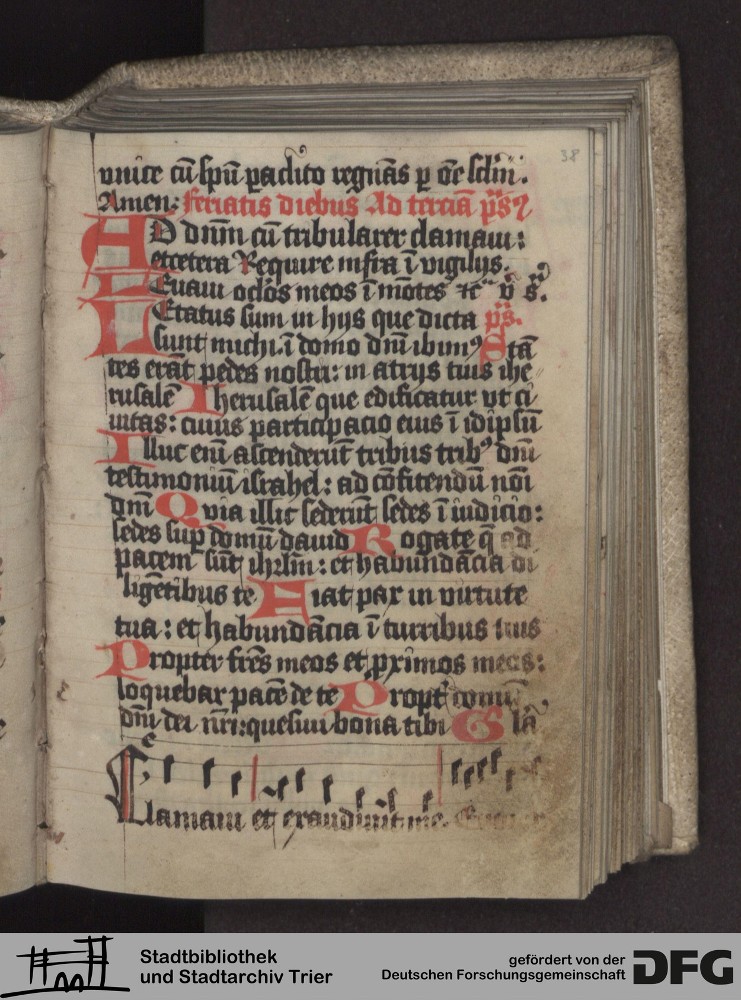 38
vnite cū spū paclito regnās p oē̄ sclm̄.
Amen: feriatis diebus Ad terciā p̄s
AD dnm̄ cū tribularer clamaui:
etcetera Require infra ī vigilijs.
LEuaui oclōs meos ī mōtes
LEtatus sum in hijs que dicta p̄s.
sunt michi: ī domo dnī ibim⁹ Stā
tes erāt pedes nostri: in atrijs tuis ihe
rusalē Iherusalē que edificatur vt ci
uitas: cuius participacio eius ī idipsū
Illuc enī ascenderūt tribus trib⁹ dnī
testimoniū israhel: ad cōfitendū noī
dnī Quia illic sederūt sedes ī iudicio:
sedes sup domū dauid Rogate q̄ ad
pacem sūt ihrlm̄: et habundācia di
ligētibus te Fiat pax in virtute
tua: et habundācia ī turribus tuis
Propter fr̄es meos et pximos meos:
loquebar pacē de te Propt domū
dnī dei nr̄i: quesiui bona tibi Glā
Clamaui et exaudiuit me.
Stadtbibliothek
und Stadtarchiv Trier
gefördert von der
Deutschen Forschungsgemeinschaft
DFG